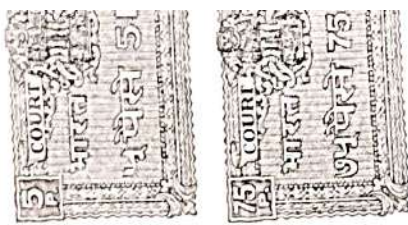 5 P
COURT
भारत
५ पैसे 5
75 P
COURT
भारत
७५ पैसे 75